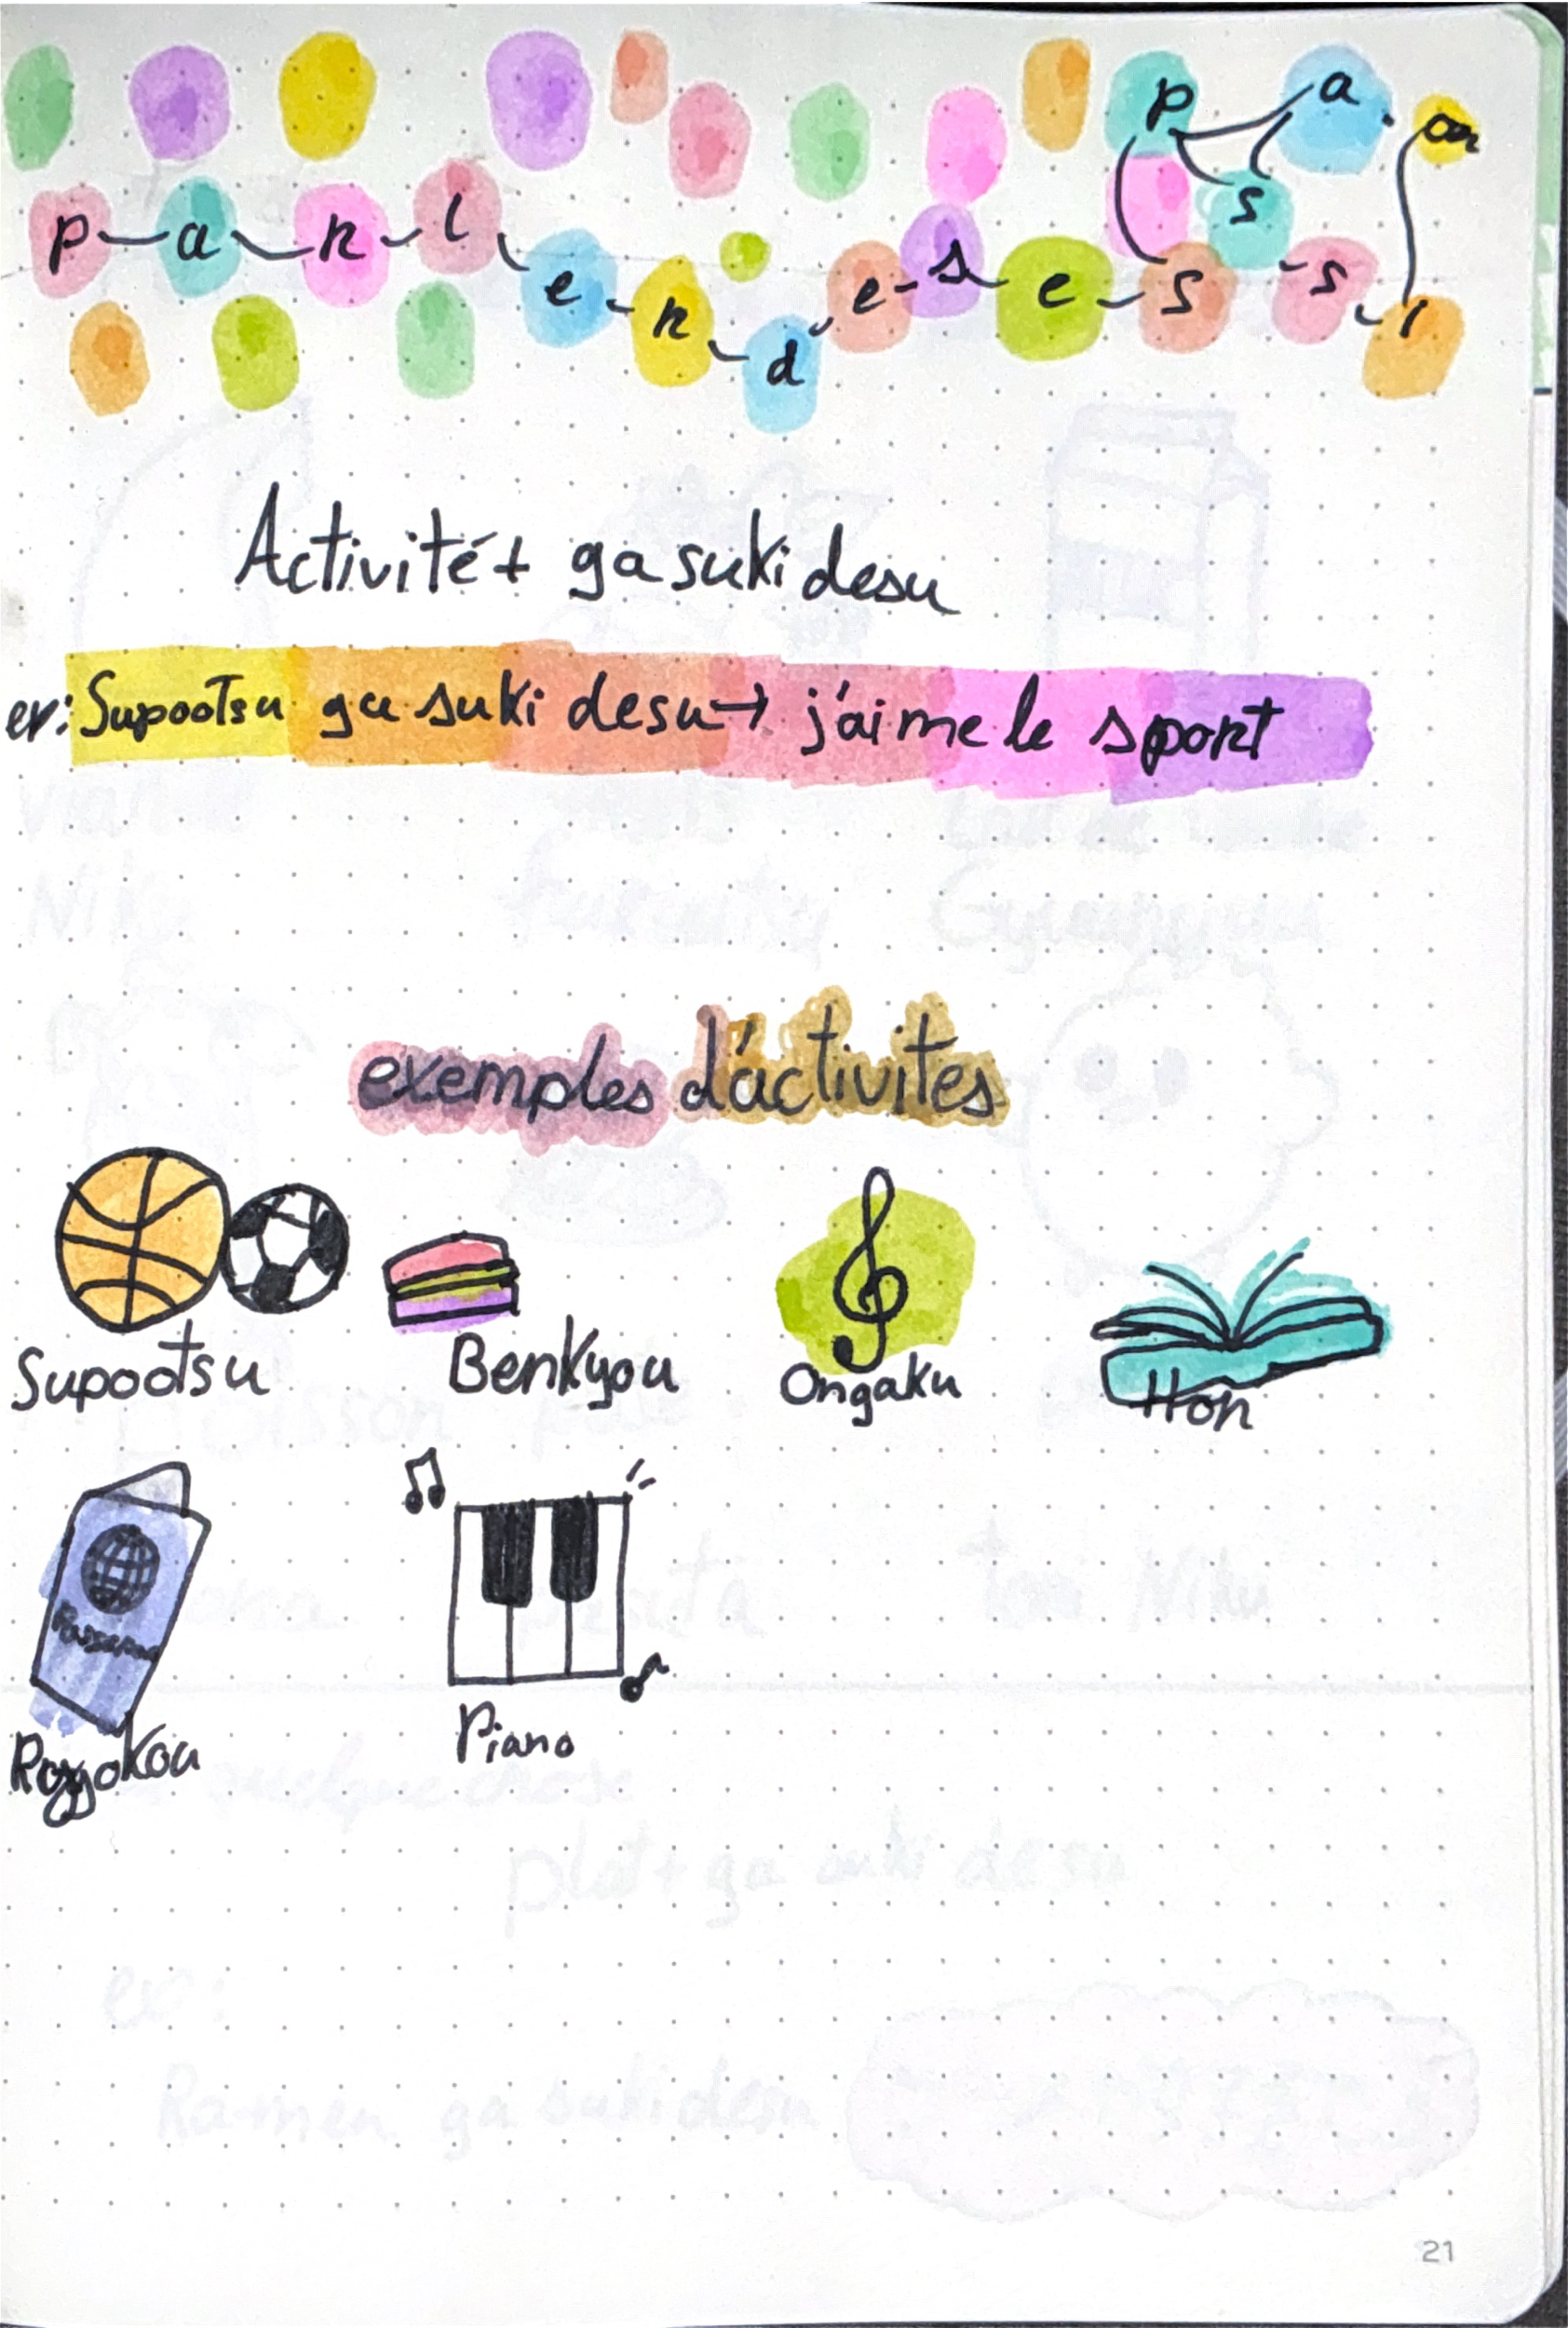 parler de ses passion
Activité + ga suki desu
ex: Supootsu ga suki desu → j'aime le sport
exemples d'activites
Supootsu Benkyou Ongaku Hon
Passeport
Ryokou Piano
21